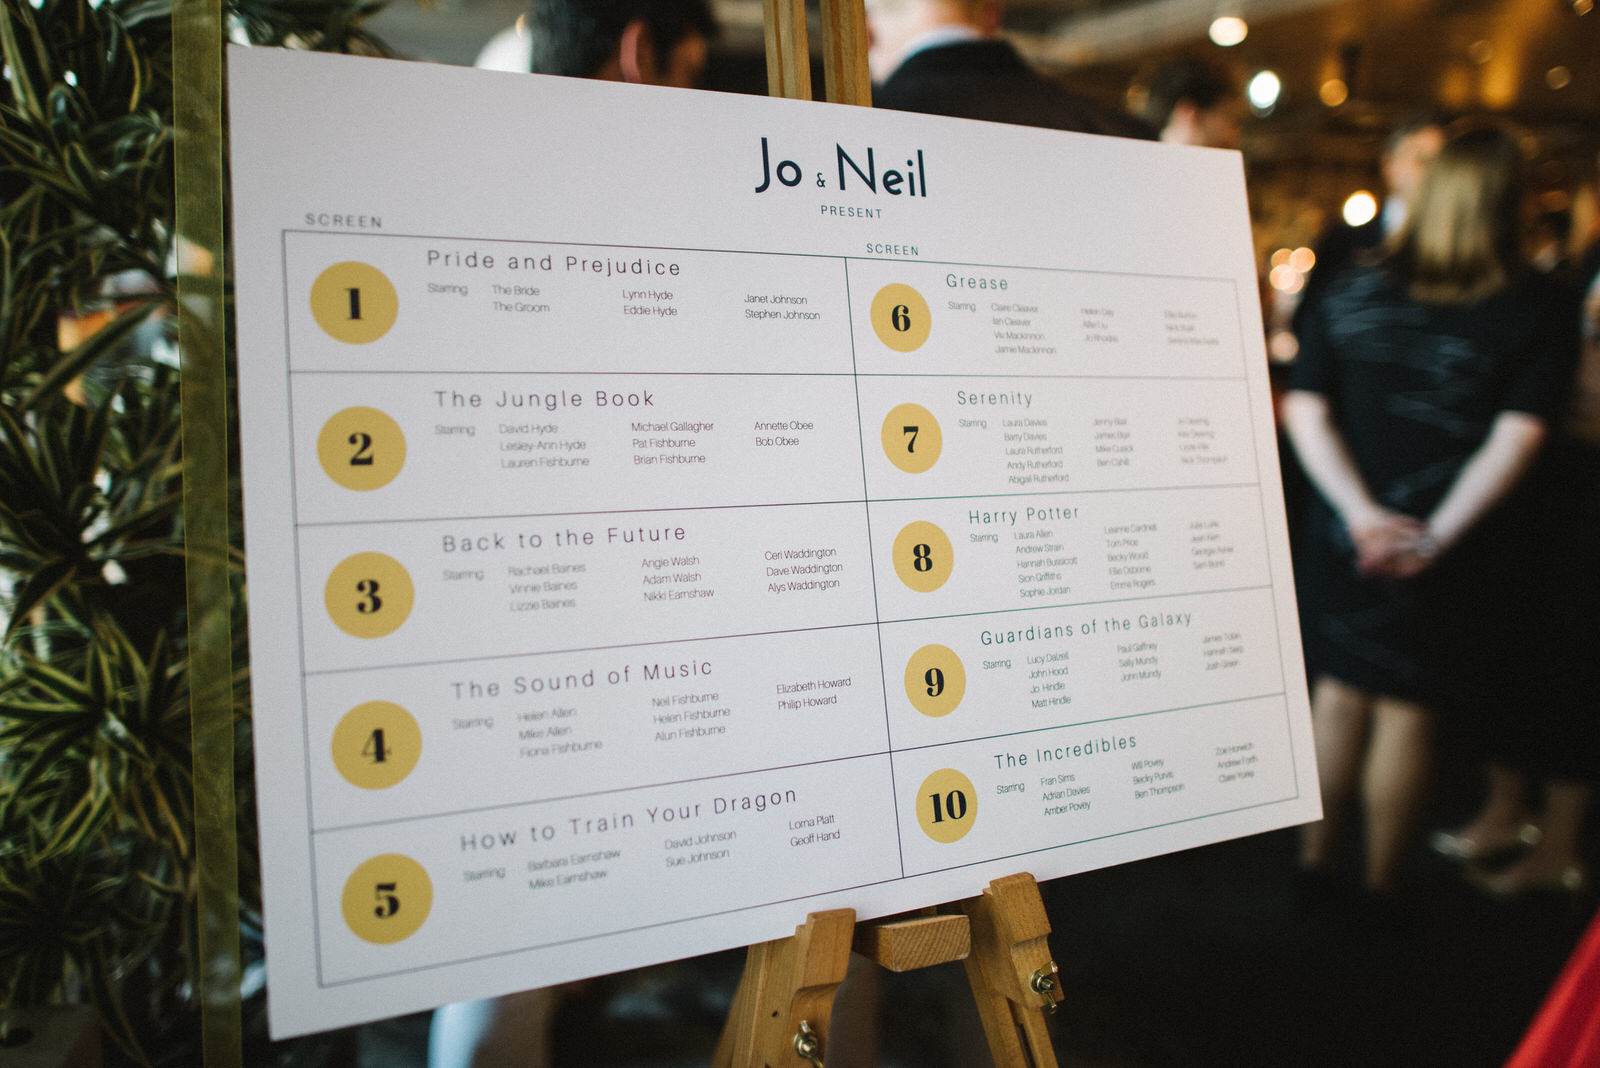 Jo & Neil
PRESENT
SCREEN
1
Pride and Prejudice
Starring
The Bride
The Groom
Lynn Hyde
Eddie Hyde
Janet Johnson
Stephen Johnson
2
The Jungle Book
Starring
David Hyde
Lesley-Ann Hyde
Lauren Fishburne
Michael Gallagher
Pat Fishburne
Brian Fishburne
Annette Obee
Bob Obee
3
Back to the Future
Starring
Rachael Baines
Vinnie Baines
Lizzie Baines
Angie Walsh
Adam Walsh
Nikki Earnshaw
Ceri Waddington
Dave Waddington
Alys Waddington
4
The Sound of Music
Starring
Helen Allen
Mike Allen
Fiona Fishburne
Neil Fishburne
Helen Fishburne
Alun Fishburne
Elizabeth Howard
Philip Howard
5
How to Train Your Dragon
Starring
Barbara Earnshaw
Mike Earnshaw
David Johnson
Sue Johnson
Lorna Platt
Geoff Hand
SCREEN
6
Grease
Starring
Claire Cleaver
Ian Cleaver
Viv Mackinnon
Jamie Mackinnon
Helen Day
Alfie Liu
Jo Rhodes
7
Serenity
Starring
Laura Davies
Barry Davies
Laura Rutherford
Andy Rutherford
Abigail Rutherford
Jenny Blair
James Blair
Mike Cusick
Ben Cahill
Nick Thompson
8
Harry Potter
Starring
Laura Allen
Andrew Strain
Hannah Bussicott
Sion Griffiths
Sophie Jordan
Leanne Cardnell
Tom Price
Becky Wood
Ellie Osborne
Emma Rogers
9
Guardians of the Galaxy
Starring
Lucy Dalzell
John Hood
Jo Hindle
Matt Hindle
Paul Gaffney
Sally Mundy
John Mundy
James Tobin
Hannah
Josh Green
10
The Incredibles
Starring
Fran Sims
Adrian Davies
Amber Povey
Will Povey
Becky Purvis
Ben Thompson
Zoe Horwich
Andrew Forth
Claire Yorke